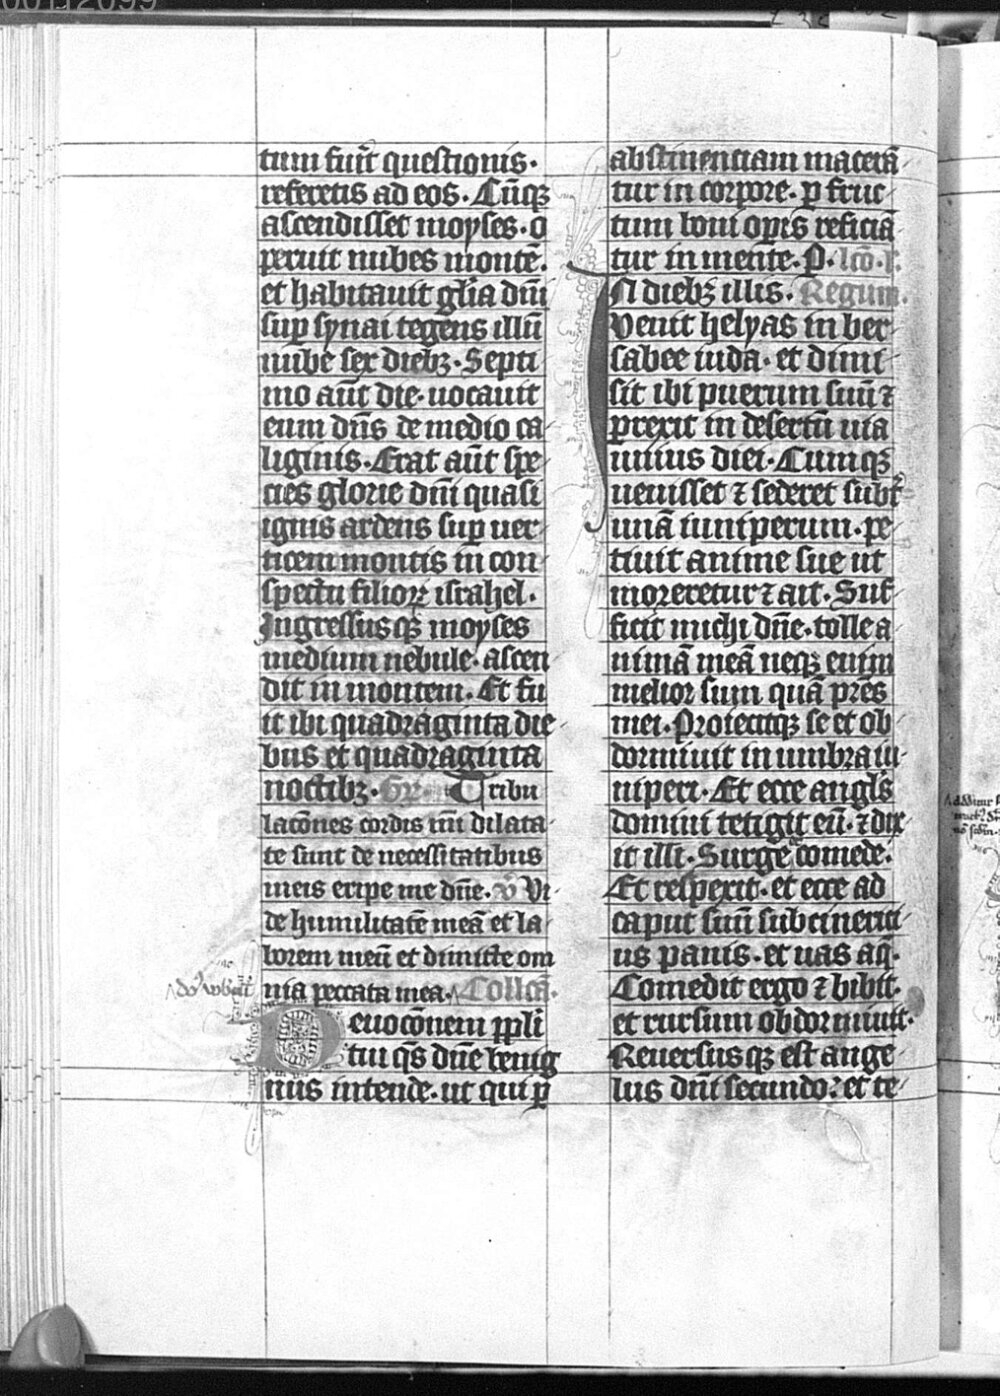 tum fuīt questionis.
referetis ad eos. Cūqꝫ
ascendisset moyses. o
peruit nubes montē.
et habitauit gl̄ia dn̄i
suꝑ synai tegens illū
nube sex diebꝫ. Septi
mo aūt die. uocauit
eum dn̄s de medio ca
liginis. Erat aūt spe
cies glorie dn̄i quasi
ignis ardens suꝑ uer
ticem montis in con
spectu filioꝝ israhel.
Ingressusqꝫ moyses
medium nebule. ascen
dit in montem. Et fu
it ibi quadraginta die
bus et quadraginta
noctibꝫ. Gr̄ Tribu
lacōnes cordis mī dilata
te sunt de necessitatibus
meis eripe me dn̄e. v̄ Vi
de humilitatē meā et la
borem meū et dimitte om
nia peccata mea. Coll̄cā.
Deuocōnem ppl̄i
tui qs̄ dn̄e benig
nus intende. ut qui ꝑ
abstinentiam macerā
tur in corpore. ꝑ fruc
tum boni opis reficiā
tur in mente. P. lc̄o. l.
IN diebꝫ illis. Regum.
Venit helyas in ber
sabee iuda. et dimi
sit ibi puerum suū ⁊
prexit in desertū uia
unius diei. Cumqꝫ
uenisset ⁊ sederet subt̄
unā iuniperum. pe
tiuit anime sue ut
moreretur ⁊ ait. Suf
ficit michi dn̄e. tolle a
nimā meā neqꝫ enim
melior sum quā prēs
mei. Proiecitqꝫ se et ob
dormiuit in umbra iu
niperi. Et ecce angls̄
domini tetigit eū. ⁊ dix
it illi. Surge comede.
Et respexit. et ecce ad
caput suū subcinerici
us panis. et uas aq̄.
Comedit ergo ⁊ bibit.
et rursum obdormiuit.
Reuersusqꝫ est ange
lus dn̄i secundo: et te